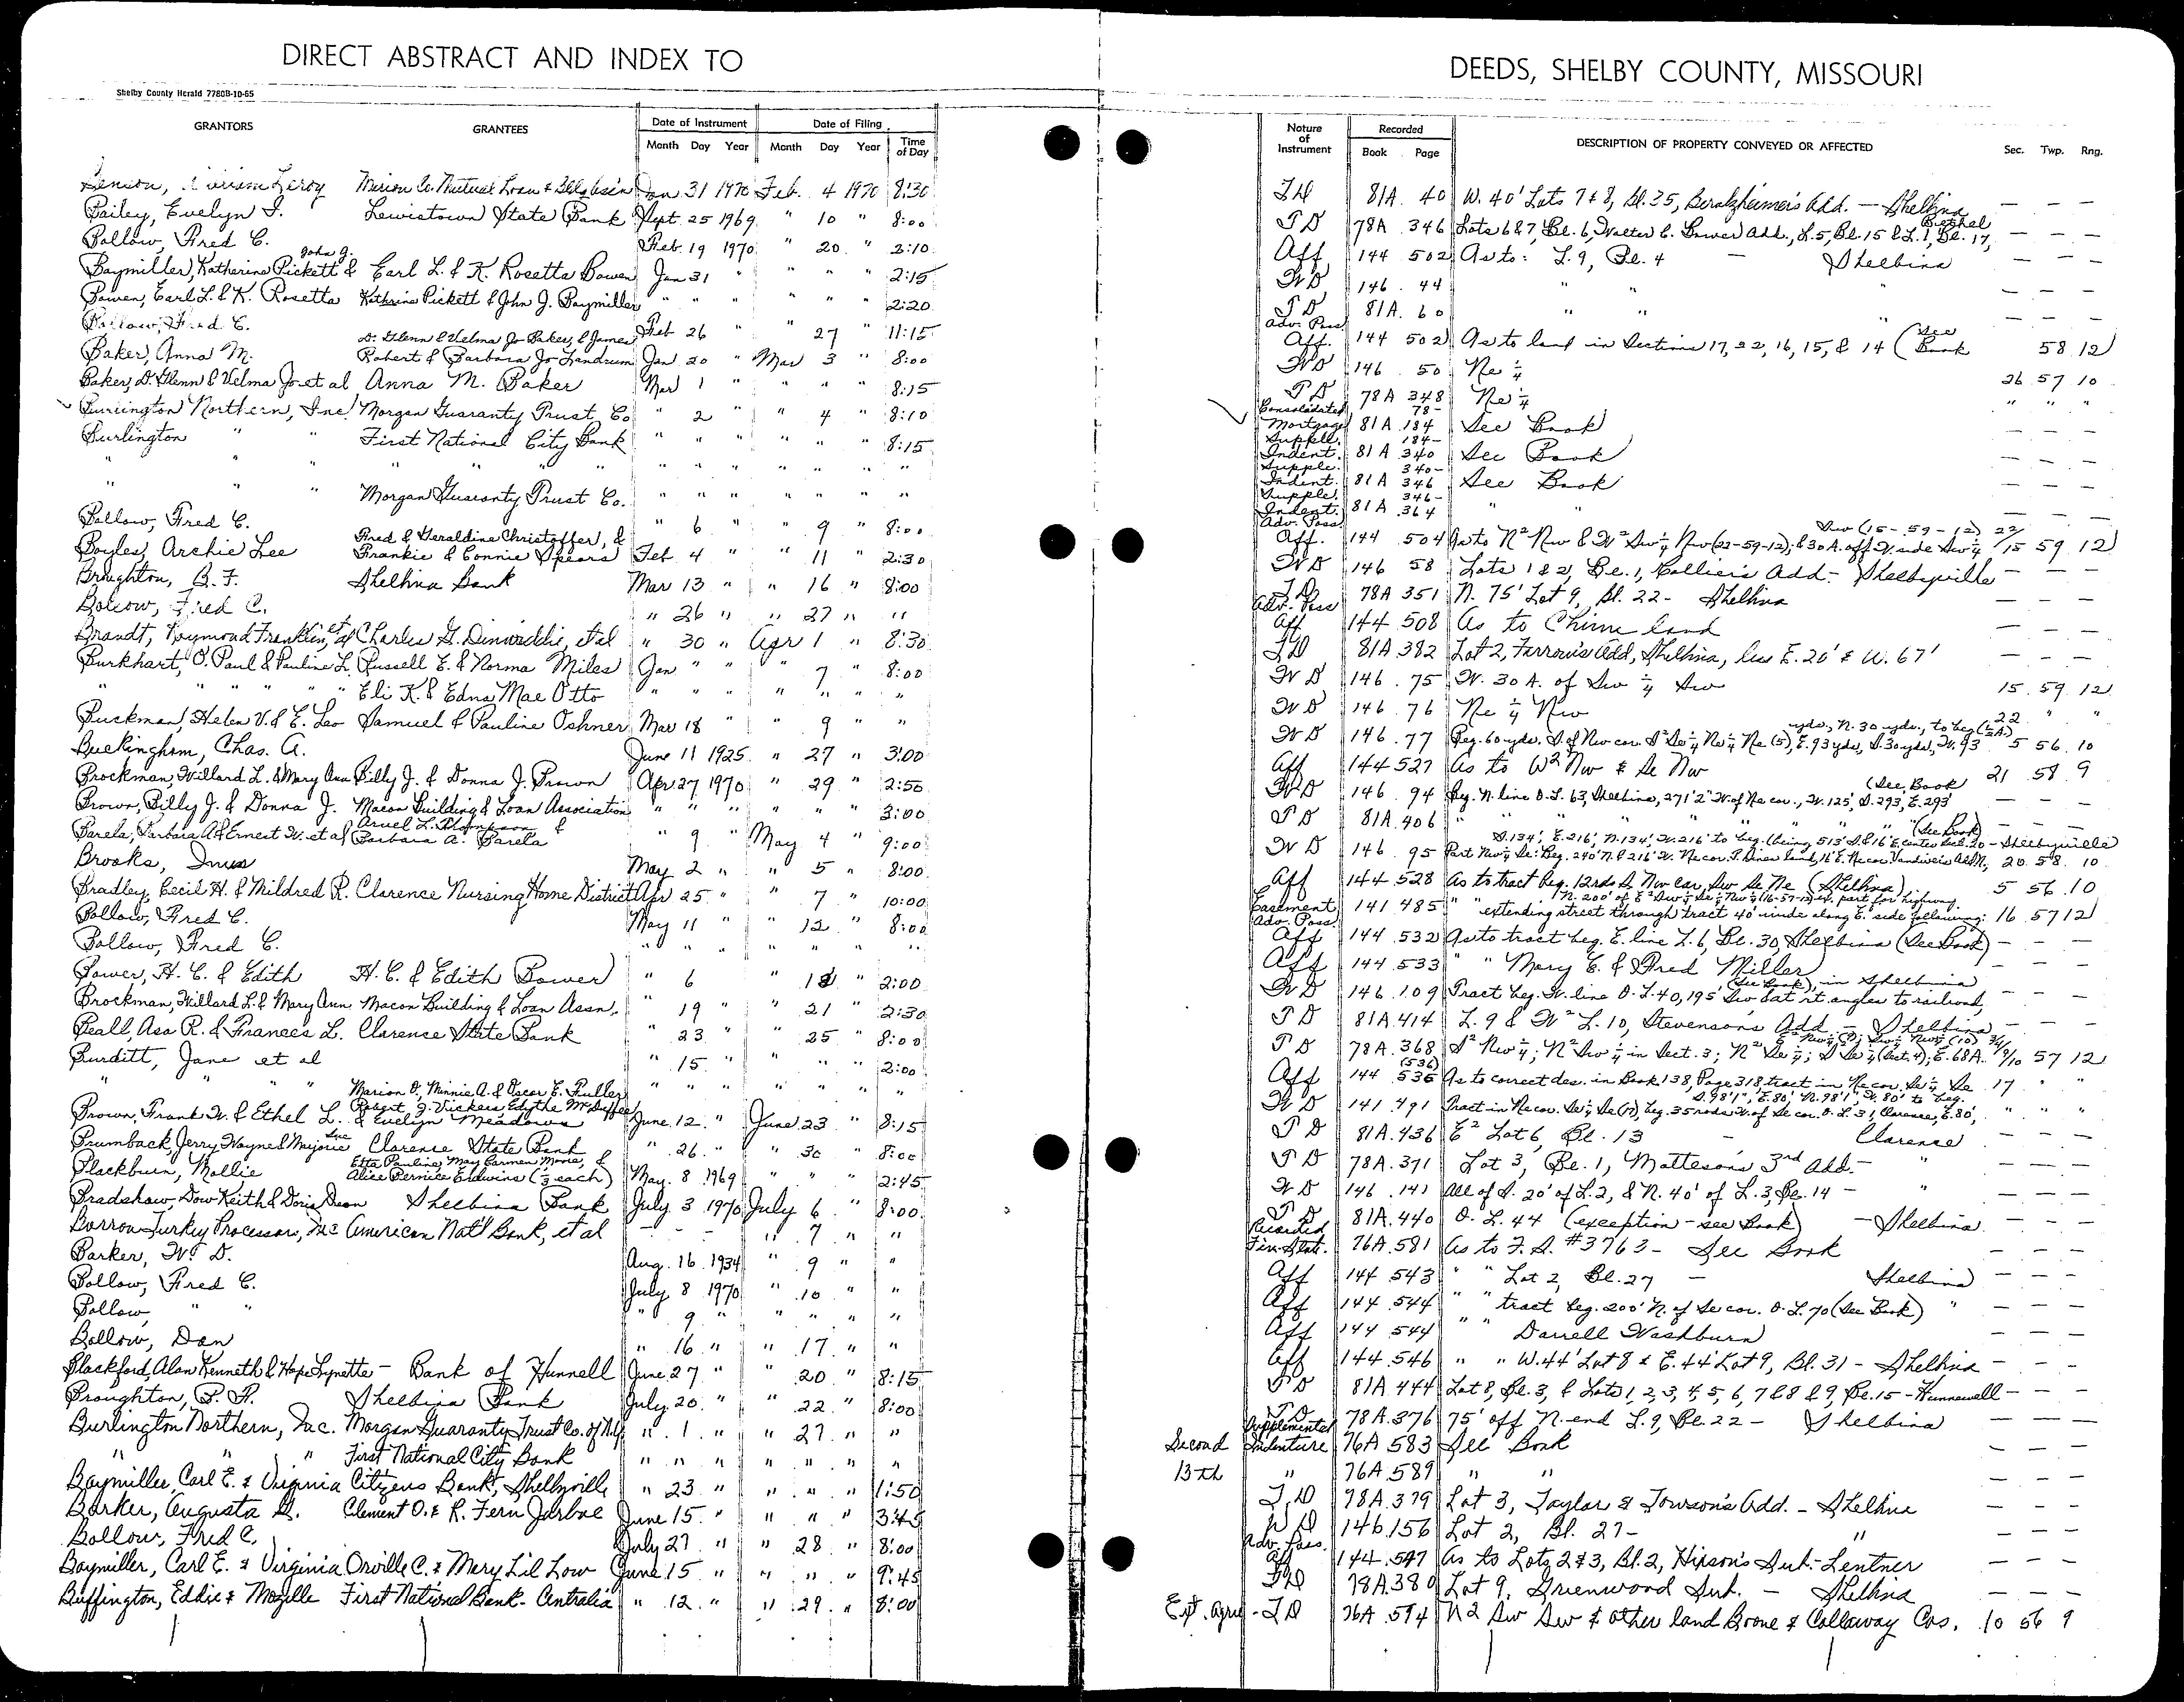 DIRECT ABSTRACT AND INDEX TO
Shelby County Herald 7780B-10-65
GRANTORS GRANTEES Date of Instrument Date of Filing
Month Day Year Month Day Year Time of Day
Leroy Marion Co. Mutual Loan & Jan 31 1970 Feb. 4 1970 8:30
Bailey, Evelyn I. Lewistown State Bank Sept. 25 1969 " 10 " 8:00
Bollow, Fred C. Feb. 19 1970 " 20 " 2:10
John J.
Baymiller, Katherine Pickett & Earl L. & K. Rosetta Bowen Jan 31 " " " " 2:15
Bowen, Earl L. & K. Rosetta Kathrine Pickett & John J. Baymiller " " " " " " 2:20
Bollow, Fred C. Feb 26 " " 27 " 11:15
D. Glenn & Velma Jo Baker, & James
Baker, Anna M. Robert & Barbara Jo Landrum Jan 20 " Mar 3 " 8:00
Baker, D. Glenn & Velma Jo et al Anna M. Baker Mar 1 " " " " 8:15
Burlington Northern, Inc. Morgan Guaranty Trust Co " 2 " " 4 " 8:10
Burlington " " First National City Bank " " " " " " 8:15
" " " " " " " " " " " " " "
" " " Morgan Guaranty Trust Co. " " " " " " "
Bollow, Fred C. " 6 " " 9 " 8:00
Fred & Geraldine Christoffer, &
Boyles, Archie Lee Frankie & Connie Spears Feb 4 " " 11 " 2:30
Broughton, B. F. Shelbina Bank Mar 13 " " 16 " 8:00
Bollow, Fred C. " 26 " " 27 " "
Brandt, Raymond Franklin, et al Charles G. Dinwiddie, et al " 30 " Apr 1 " 8:30
Burkhart, O. Paul & Pauline L. Russell E. & Norma Miles Jan " " " 7 " 8:00
" " " " " Eli K. & Edna Mae Otto " " " " " " "
Buckman, Helen V. & E. Leo Samuel & Pauline Oshner Mar 18 " " 9 " "
Buckingham, Chas. A. June 11 1925 " 27 " 3:00
Brockman, Willard L. & Mary Ann Billy J. & Donna J. Brown Apr 27 1970 " 29 " 2:50
Brown, Billy J. & Donna J. Macon Building & Loan Association " " " " " " 3:00
Aruel L. Thompson &
Barela, Barbara A. & Ernest W. et al Barbara A. Barela " 9 " May 4 " 9:00
Brooks, May 2 " " 5 " 8:00
Bradley, Cecil H. & Mildred R. Clarence Nursing Home District Apr 25 " " 7 " 10:00
Bollow, Fred C. May 11 " " 12 " 8:00
Bollow, Fred C. " " " " " " "
Bower, H. C. & Edith H. C. & Edith Bower " 6 " " 18 " 2:00
Brockman, Willard L. & Mary Ann Macon Building & Loan Assn. " 19 " " 21 " 2:30
Beall, Asa R. & Frances L. Clarence State Bank " 23 " " 25 " 8:00
Burditt, Jane et al " 15 " " " " 2:00
" " " Marion O., Minnie A. & Oscar E. Fuller " " " " " " "
Robert J. Vickers, Edythe McDuffee
Brown, Frank W. & Ethel L. & Evelyn Meadows June 12 " June 23 " 8:15
Brumback, Jerry Wayne & Marjorie Sue Clarence State Bank " 26 " " 30 " 8:00
Etta Pauline, May Carmen Moore, &
Blackburn, Mollie Alice Bernice Erdwins (⅓ each) May 8 1969 " " " 2:45
Bradshaw, Dow Keith & Doris Dean Shelbina Bank July 3 1970 July 6 " 8:00
Borrow Turkey Processors, Inc American Nat'l Bank, et al - - - " 7 " "
Barker, W. D. Aug. 16 1934 " 9 " "
Bollow, Fred C. July 8 1970 " 10 " "
Bollow, " " " 9 " " " " "
Bollow, Dan " 16 " " 17 " "
Blackford, Alan Kenneth & Hope Lynette - Bank of Hunnell June 27 " " 20 " 8:15
Broughton, B. F. Shelbina Bank July 20 " " 22 " 8:00
Burlington Northern, Inc. Morgan Guaranty Trust Co. of N.Y. " 1 " " 27 " "
" " " First National City Bank " " " " " " "
Baymiller, Carl E. & Virginia Citizens Bank, Shelbyville " 23 " " " " 1:50
Barker, Augusta G. Clement O. & R. Fern Jarboe June 15 " " " " 3:45
Bollow, Fred C. July 27 " " 28 " 8:00
Baymiller, Carl E. & Virginia Orville C. & Mary Lil Low June 15 " " " " 9:45
Buffington, Eddie & Mozille First National Bank - Centralia " 12 " " 29 " 8:00
DEEDS, SHELBY COUNTY, MISSOURI
Nature of Instrument Recorded DESCRIPTION OF PROPERTY CONVEYED OR AFFECTED Sec. Twp. Rng.
Book Page
T D 81A 40 W. 40' Lots 7 & 8, Bl. 35, Beralzheimer's Add. — Shelbina — — —
Bethel
T D 78A 346 Lots 6 & 7, Bl. 6, Walter C. Bower Add., L. 5, Bl. 15 & L. 1, Bl. 17, — — —
Aff 144 502 As to: L. 9, Bl. 4 - Shelbina — — —
W D 146 44 " " " — — —
T D 81A 60 " " " — — —
Adv. Poss.
Aff. 144 502 As to land in Sections 17, 22, 16, 15, & 14 (See Book 58 12
W D 146 50 Ne ¼ 26 57 10
T D 78A 348 Ne ¼ " " "
Consolidated 78-
Mortgage 81A 184 See Book — — —
Suppl. 184-
Indent. 81A 340 See Book — — —
Supple. 340-
Indent. 81A 346 See Book — — —
Supple. 346-
Indent. 81A 364 " " — — —
Adv. Poss. Sw (15-59-12) 22/
Aff. 144 504 As to N² Nw & W² Sw ¼ Nw (22-59-12), & 30 A. off W. side Sw ¼ 15 59 12
W D 146 58 Lots 1 & 2, Bl. 1, Collier's Add. - Shelbyville — — —
T D 78A 351 N. 75' Lot 9, Bl. 22 - Shelbina — — —
Adv. Poss
Aff 144 508 As to Chinn land — — —
T D 81A 382 Lot 2, Farrow's Add, Shelbina, less E. 20' & W. 67' — — —
W D 146 75 W. 30 A. of Sw ¼ Sw 15 59 12
W D 146 76 Ne ¼ Nw 22 " "
yds., N. 30 yds., to beg (½A)
W D 146 77 Beg. 60 yds. S. of Nw cor. S² Se ¼ Ne ¼ Ne (5), E. 93 yds, S. 30 yds, W. 93 5 56 10
Aff 144 527 As to W² Nw & Se Nw 21 58 9
(See Book
W D 146 94 Beg. N. line O. L. 63, Shelbina, 271' 2" W. of Ne cor., W. 125', S. 293, E. 293 — — —
T D 81A 406 " " " " " " " " (See Book) — — —
S. 134', E. 216', N. 134', W. 216' to beg. (being 513' S. & 16' E. center Sec. 20 - Shelbyville
W D 146 95 Part Nw ¼ Se: Beg. 240' N. & 216' W. Ne cor. land, 16' E. Ne cor. Vandiver's Addn, 20 58 10
Aff 144 528 As to tract beg. 12 rds S. Nw cor, Sw Se Ne (Shelbina) 5 56 10
N. 200' of E² Sw ¼ Se ¼ Nw ¼ (16-57-12) ex. part for highway
Easement 141 485 " " extending street through tract 40' wide along E. side following: 16 57 12
Adv. Poss.
Aff 144 532 As to tract beg. E. line L. 6, Bl. 30, Shelbina (See Book) — — —
Aff 144 533 " " Mary E. & Fred Miller — — —
(See Book), in Shelbina
W D 146 109 Tract beg. W. line O. L. 40, 195' Sw but rt. angles to railroad, — — —
T D 81A 414 L. 9 & W² L. 10, Stevenson's Add. - Shelbina — — —
E² Nw ¼ (9); Sw ¼ Nw ¼ (10) 3/4/
T D 78A 368 S² Nw ¼; N² Sw ¼ in Sect. 3; N² Se ¼; S Se ¼ (Sect. 4); E. 68A. 9/10 57 12
(536)
Aff 144 536 As to correct des. in Book 138, Page 318, tract in Ne cor. Se ¼ Se 17 " "
S. 98'1", E. 80', N. 98'1", W. 80' to beg.
W D 141 491 Tract in Ne cor. Se ¼ Se (17), beg. 35 rods W. of Se cor. O. L. 31, Clarence, E. 80', " " "
T D 81A 436 E² Lot 6, Bl. 13 - Clarence — — —
T D 78A 371 Lot 3, Bl. 1, Matteson's 3rd Add. - " — — —
W D 146 141 All of S. 20' of L. 2, & N. 40' of L. 3, Bl. 14 - " — — —
T D 81A 440 O. L. 44 (exception - see Book) - Shelbina — — —
Fin. Stat. 76A 581 As to F. S. #3763 - See Book — — —
Aff 144 543 " " Lot 2, Bl. 27 - Shelbina — — —
Aff 144 544 " " tract beg. 200' N. of Se cor. O. L. 70 (See Book) " — — —
Aff 144 544 " " Darrell Washburn — — —
Aff 144 546 " " W. 44' Lot 8 & E. 44' Lot 9, Bl. 31 - Shelbina — — —
T D 81A 444 Lot 8, Bl. 3, & Lots 1, 2, 3, 4, 5, 6, 7 & 8 & 9, Bl. 15 - Hunnewell — — —
T D 78A 376 75' off N. end L. 9, Bl. 22 - Shelbina — — —
Supplemental
Second Indenture 76A 583 See Book — — —
13th " 76A 589 " " — — —
T D 78A 379 Lot 3, Taylor & Towson's Add. - Shelbina — — —
W D 146 156 Lot 2, Bl. 27 - " — — —
Adv. Poss.
Aff 144 547 As to Lots 2 & 3, Bl. 2, Hixson's Sub. - Lentner — — —
T D 78A 380 Lot 9, Greenwood Sub. - Shelbina — — —
Ext. Agree - T D 76A 594 N2 Sw Sw & other land Boone & Callaway Cos. 10 56 9